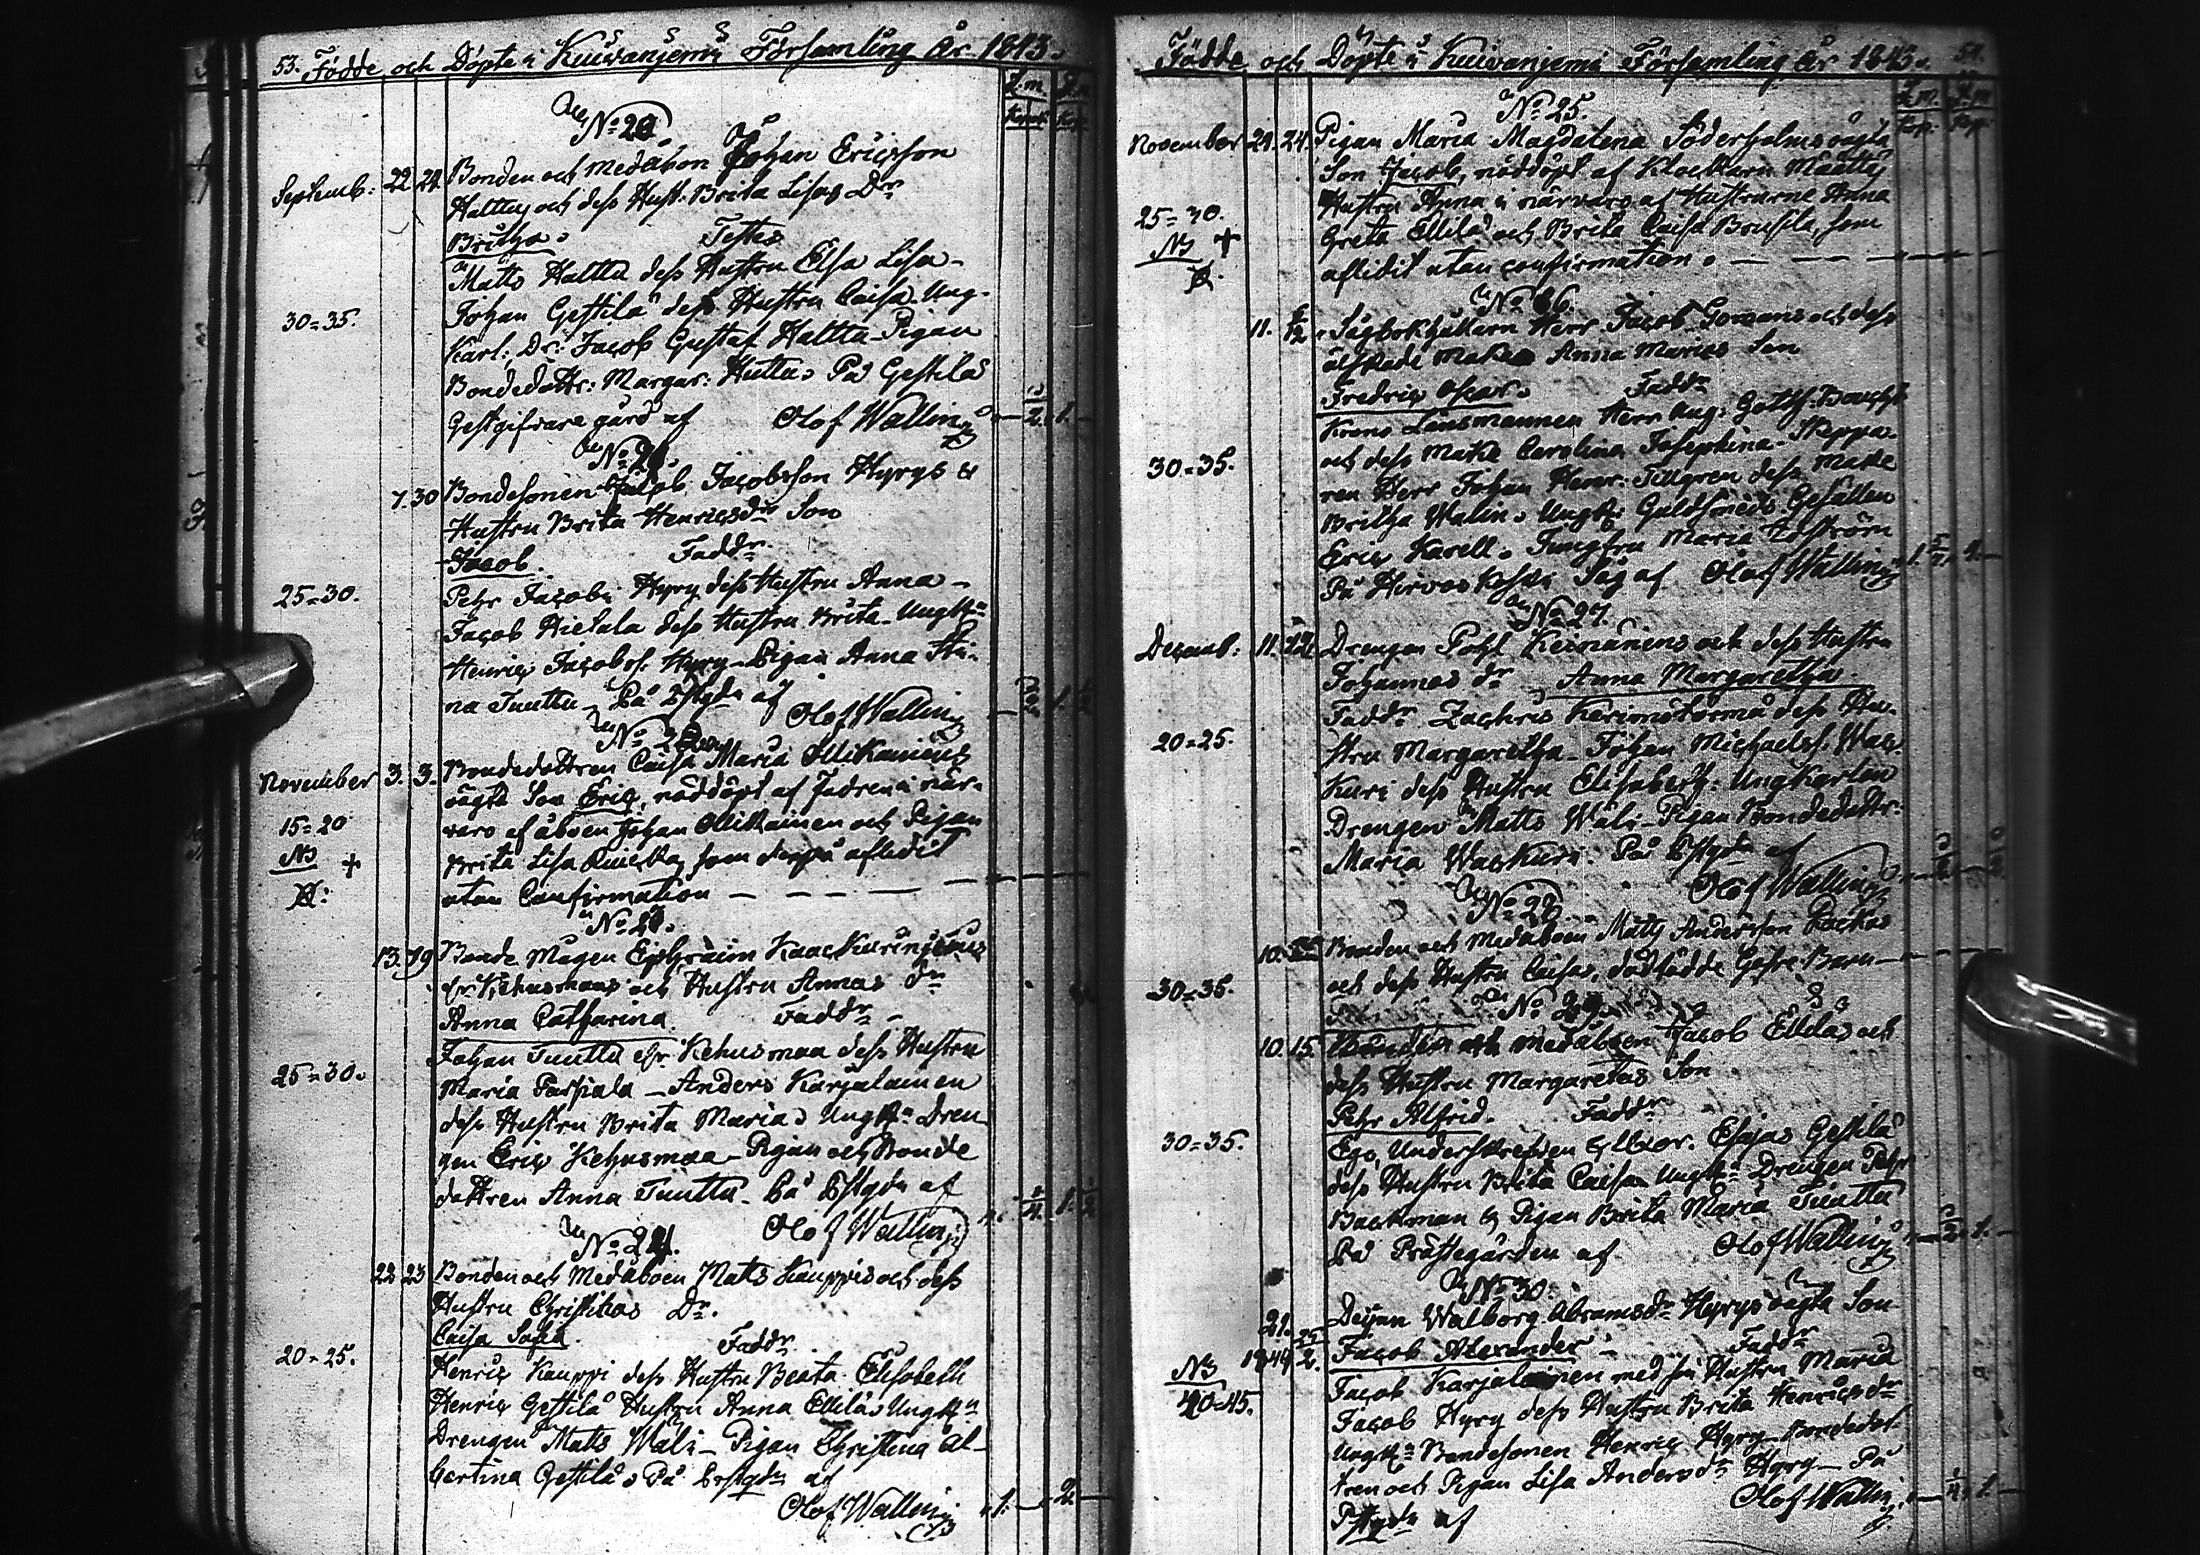 53. Födde och Döpte i Kuivaniemi Församling År 1843.
No 20.
Septemb: 22 24 Bonden och Medåbon Johan Ericsson
Halttus och dess Hust. Brita Lisas Dr
Britha. Testes
Matts Halttu dess Hustru Elsa Lisa -
30=35. Johan Gestilä dess Hustru Caisa. Ung-
Karl: Dr: Jacob Gustaf Halttu - Pigan
Bondedottr: Margar: Huttu. På Gestilä
Gestgifvare gård af Olof Wallin 2. 1.
No 21.
7. 30 Bondesonen Jacob Jacobsson Hyrys &
Hustru Brita Henricsdr Son
Jacob. Faddr
25=30. Pehr Jacobs: Hyry dess Hustru Anna -
Jacob Hietala dess Hustru Brita - Ungkn
Henric Jacobss. Hyry - Pigan Anna
na Tuuttu - På af
Olof Wallin
No 22
November 3. 3. Bondedottren Caisa Maria Ollikainens
oägta Son Eric, nöddöpt af Fadren i när-
15=20 varo af åboen Johan Ollikainen och Pigan
NB + Brita Lisa som derpå aflidit
utan Confirmation - - - -
No 23.
13. 19 Bonde Mågen Ephraim
och Hustru Annas Dr
Anna Catharina. Faddr -
Johan Tuuttu Kehusmaa dess Hustru
25=30. Maria - Anders Karjalainen
dess Hustru Brita Maria. Ungkn Dren
gen Eric Kehusmaa - Pigan och Bonde
dottren Anna Tuuttu - På af
Olof Wallin
No 24.
22 23 Bonden och Medåboen Matts Kauppis och dess
Hustru Christinas Dr.
Caisa Sofia. Faddr
20=25. Henric Kauppi dess Hustru Beata Elisabeth
Henric Gestilä Hustru Anna Ellilä. Ungkn
Drengen Matts Wäli - Pigan Christina Al-
bertina Gestilä. På af
Olof Wallin 1. 2
Födde och Döpte i Kuivaniemi Församling År 1843. 54.
No 25.
November 24. 24. Pigan Maria Magdalena Söderholms oägta
Son Jacob, nöddöpt af Klockarn Määttäs
25=30. Hustru Anna i närvaro af Hustrurne Anna
NB + Greta Ellilä och Brita Caisa Brusila som
aflidit utan confirmation. - - -
No 26.
11. Sågbokhållarn Herr Jacob Gomans och dess
älskade Maka Anna Marias Son
Fredric Oscar. Faddr
Krono Länsmannen Herr Aug: Gottlf.
och dess Maka Carolina Josephina - Skeppa-
30=35. ren Herr Johan Henr: Tillgren dess Maka
Britha Walin. Ungk: Guldsmeds Gesällen
Eric Karell. Jungfru Maria
På Hirvaskoski Såg af Olof Wallin 1.
No 27.
Decemb: 11. Drengen Pohl Keinänens och dess Hustru
Johannas dr Anna Margaretha.
Faddr Zachris dess Hu-
20=25. stru Margaretha - Johan Michaelss. Wac
kuri dess Hustru Elisabeth: Ungkarlen
Drengen Matts Wäli - Pigan Bondedottr:
Maria Wackuri. På af
Olof Wallin
No 28
10. Bonden och Medåboen Matts Andersson
30=35. och dess Hustru Caisas, dödfödde Gosse Barn -
No 29.
10. 15. Bonden och Medåboen Jacob Ellilä och
dess Hustru Margaretas Son
Pehr Alfrid. Faddr
30=35. Ego, Underskrefven & Uxor. Esajas Gestilä
dess Hustru Brita Caisa. Ungkn Drengen Pehr
Backman & Pigan Brita Maria Tuuttu
På Prästegården af Olof Wallin 1.
No 30.
21. Dejan Walborg Abramsdr Hyrys oägta Son
1844 25/2. Jacob Alexander. Faddr
NB Jacob Karjalainen med sin Hustru Maria
40=45. Jacob Hyry dess Hustru Brita Henricsdr
Ungkn Bondesonen Henric Hyry - Bondedot-
tren och Pigan Lisa Andersdr Hyry - På
af Olof Wallin 1.